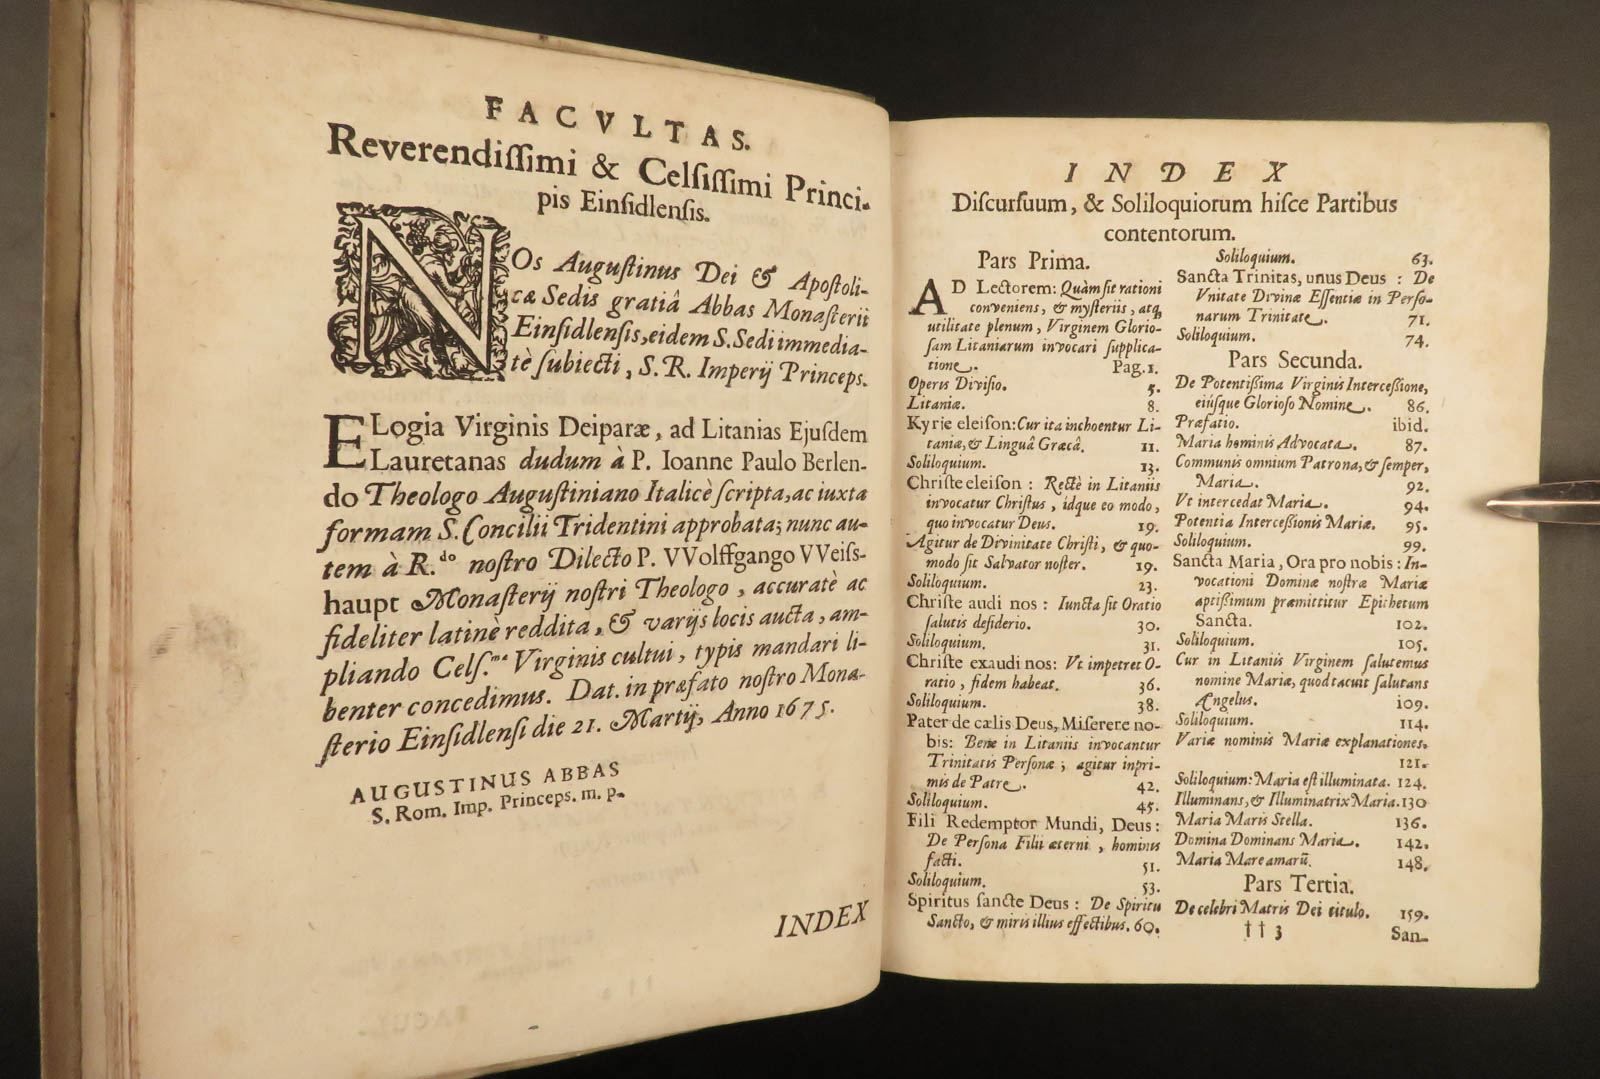 FACVLTAS.
Reverendiſſimi & Celſiſſimi Princi-
pis Einſidlenſis.
NOs Auguſtinus Dei & Apoſtoli-
cæ Sedis gratiâ Abbas Monaſterii
Einſidlenſis, eidem S. Sedi immedia-
tè ſubiecti, S. R. Imperij Princeps.
ELogia Virginis Deiparæ, ad Litanias Ejuſdem
Lauretanas dudum à P. Ioanne Paulo Berlen-
do Theologo Auguſtiniano Italicè ſcripta, ac iuxta
formam S. Concilii Tridentini approbata; nunc au-
tem à R.do noſtro Dilecto P. VVolffgango VVeiſs-
haupt Monaſterij noſtri Theologo, accuratè ac
fideliter latinè reddita, & varijs locis aucta, am-
pliando Celſ.mæ Virginis cultui, typis mandari li-
benter concedimus. Dat. in præfato noſtro Mona-
ſterio Einſidlenſi die 21. Martij, Anno 1675.
AUGUSTINUS ABBAS
S. Rom. Imp. Princeps. m. p.
INDEX
INDEX
Diſcurſuum, & Soliloquiorum hiſce Partibus
contentorum.
Pars Prima.
AD Lectorem: Quàm ſit rationi
conveniens, & myſteriis, atq;
utilitate plenum, Virginem Glorio-
ſam Litaniarum invocari ſupplica-
tione. Pag. 1.
Operis Diviſio. 5.
Litaniæ. 8.
Kyrie eleiſon: Cur ita inchoentur Li-
taniæ, & Linguâ Græcâ. 11.
Soliloquium. 13.
Chriſte eleiſon: Rectè in Litaniis
invocatur Chriſtus, idque eo modo,
quo invocatur Deus. 19.
Agitur de Divinitate Chriſti, & quo-
modo ſit Salvator noſter. 19.
Soliloquium. 23.
Chriſte audi nos: Iuncta ſit Oratio
ſalutis deſiderio. 30.
Soliloquium. 31.
Chriſte exaudi nos: Vt impetret O-
ratio, fidem habeat. 36.
Soliloquium. 38.
Pater de cælis Deus, Miſerere no-
bis: Bene in Litaniis invocantur
Trinitatis Perſonæ; agitur inpri-
mis de Patre. 42.
Soliloquium. 45.
Fili Redemptor Mundi, Deus:
De Perſona Filii æterni, hominis
facti. 51.
Soliloquium. 53.
Spiritus ſancte Deus: De Spiritu
Sancto, & miris illius effectibus. 60.
Soliloquium. 63.
Sancta Trinitas, unus Deus: De
Vnitate Divinæ Eſſentiæ in Perſo-
narum Trinitate. 71.
Soliloquium. 74.
Pars Secunda.
De Potentißima Virginis Interceßione,
eiúſque Glorioſo Nomine. 86.
Præfatio. ibid.
Maria hominis Advocata. 87.
Communis omnium Patrona, & ſemper,
Maria. 92.
Vt intercedat Maria. 94.
Potentia Interceßionis Mariæ. 95.
Soliloquium. 99.
Sancta Maria, Ora pro nobis: In-
vocationi Dominæ noſtræ Mariæ
aptißimum præmittitur Epithetum
Sancta. 102.
Soliloquium. 105.
Cur in Litaniis Virginem ſalutemus
nomine Mariæ, quod tacuit ſalutans
Angelus. 109.
Soliloquium. 114.
Variæ nominis Mariæ explanationes.
121.
Soliloquium: Maria eſt illuminata. 124.
Illuminans, & Illuminatrix Maria. 130
Maria Maris Stella. 136.
Domina Dominans Maria. 142.
Maria Mare amarū. 148.
Pars Tertia.
De celebri Matris Dei titulo. 159.
†† 3 San-